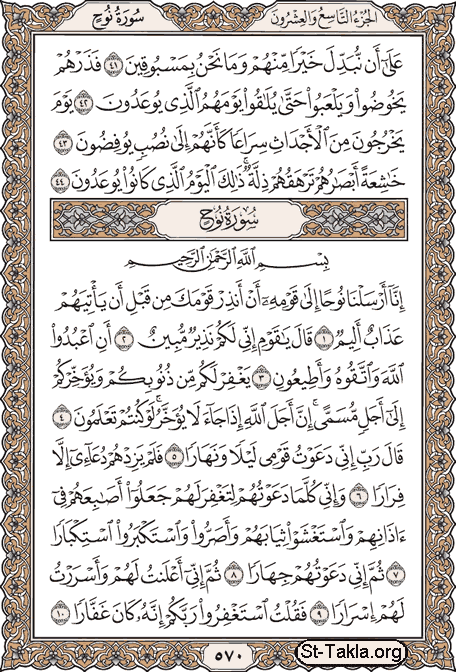 الجزء التاسع والعشرون
سورة نوح
عَلَىٰٓ أَن نُّبَدِّلَ خَيْرًا مِّنْهُمْ وَمَا نَحْنُ بِمَسْبُوقِينَ ٤١ فَذَرْهُمْ
يَخُوضُوا۟ وَيَلْعَبُوا۟ حَتَّىٰ يُلَٰقُوا۟ يَوْمَهُمُ ٱلَّذِى يُوعَدُونَ ٤٢ يَوْمَ
يَخْرُجُونَ مِنَ ٱلْأَجْدَاثِ سِرَاعًا كَأَنَّهُمْ إِلَىٰ نُصُبٍ يُوفِضُونَ ٤٣
خَٰشِعَةً أَبْصَٰرُهُمْ تَرْهَقُهُمْ ذِلَّةٌ ۚ ذَٰلِكَ ٱلْيَوْمُ ٱلَّذِى كَانُوا۟ يُوعَدُونَ ٤٤
سورة نوح
بِسْمِ ٱللَّهِ ٱلرَّحْمَٰنِ ٱلرَّحِيمِ
إِنَّآ أَرْسَلْنَا نُوحًا إِلَىٰ قَوْمِهِۦٓ أَنْ أَنذِرْ قَوْمَكَ مِن قَبْلِ أَن يَأْتِيَهُمْ
عَذَابٌ أَلِيمٌ ١ قَالَ يَٰقَوْمِ إِنِّى لَكُمْ نَذِيرٌ مُّبِينٌ ٢ أَنِ ٱعْبُدُوا۟
ٱللَّهَ وَٱتَّقُوهُ وَأَطِيعُونِ ٣ يَغْفِرْ لَكُم مِّن ذُنُوبِكُمْ وَيُؤَخِّرْكُمْ
إِلَىٰٓ أَجَلٍ مُّسَمًّى ۚ إِنَّ أَجَلَ ٱللَّهِ إِذَا جَآءَ لَا يُؤَخَّرُ ۖ لَوْ كُنتُمْ تَعْلَمُونَ ٤
قَالَ رَبِّ إِنِّى دَعَوْتُ قَوْمِى لَيْلًا وَنَهَارًا ٥ فَلَمْ يَزِدْهُمْ دُعَآءِىٓ إِلَّا
فِرَارًا ٦ وَإِنِّى كُلَّمَا دَعَوْتُهُمْ لِتَغْفِرَ لَهُمْ جَعَلُوٓا۟ أَصَٰبِعَهُمْ فِىٓ
ءَاذَانِهِمْ وَٱسْتَغْشَوْا۟ ثِيَابَهُمْ وَأَصَرُّوا۟ وَٱسْتَكْبَرُوا۟ ٱسْتِكْبَارًا
٧ ثُمَّ إِنِّى دَعَوْتُهُمْ جِهَارًا ٨ ثُمَّ إِنِّىٓ أَعْلَنتُ لَهُمْ وَأَسْرَرْتُ
لَهُمْ إِسْرَارًا ٩ فَقُلْتُ ٱسْتَغْفِرُوا۟ رَبَّكُمْ إِنَّهُۥ كَانَ غَفَّارًا ١٠
٥٧٠
St-Takla.org